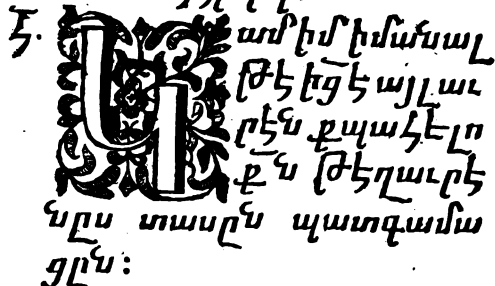 Է. Կամիմ իմանալ
թէ ի՞ցէ այլաւ
րէն քպահէլո
քն թէղաւըէ
նըս տասըն պատգամա
ցըն։